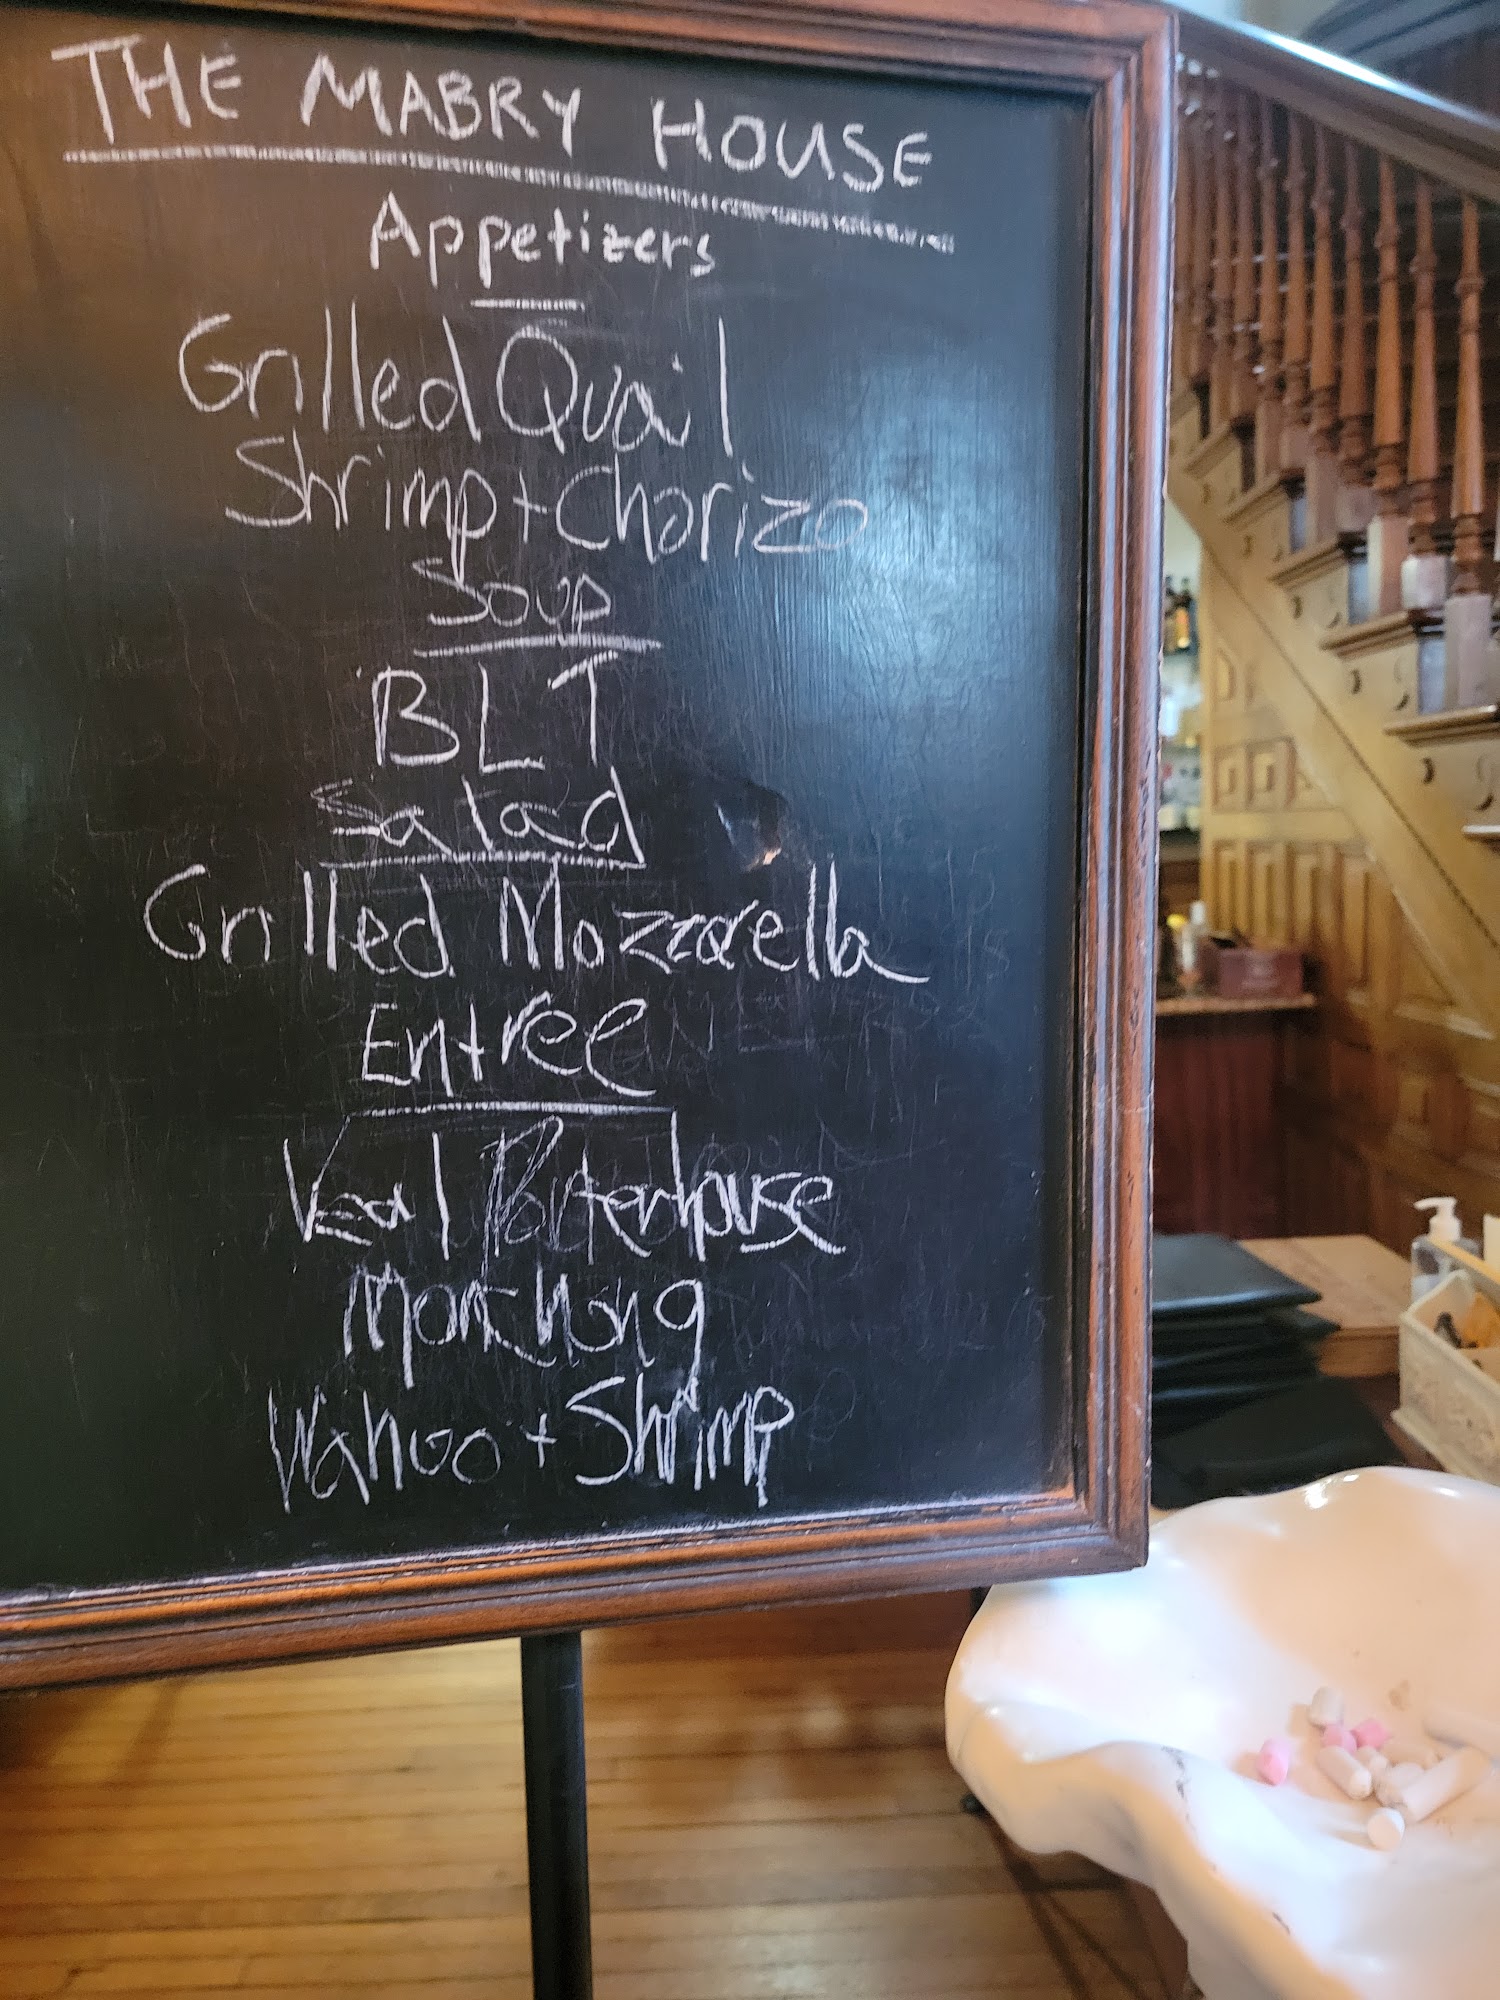 THE MABRY HOUSE
Appetizers
Grilled Quail
Shrimp + Chorizo
Soup
BLT
Salad
Grilled Mozzarella
Entree
Veal Porterhouse
Wahoo + Shrimp